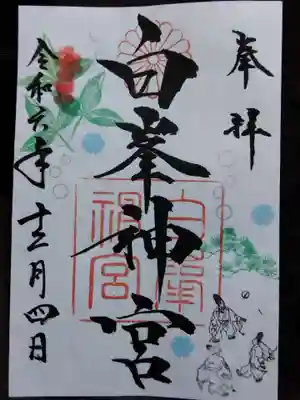 奉拝
白峯神宮
白峯神宮
令和六年
十二月四日